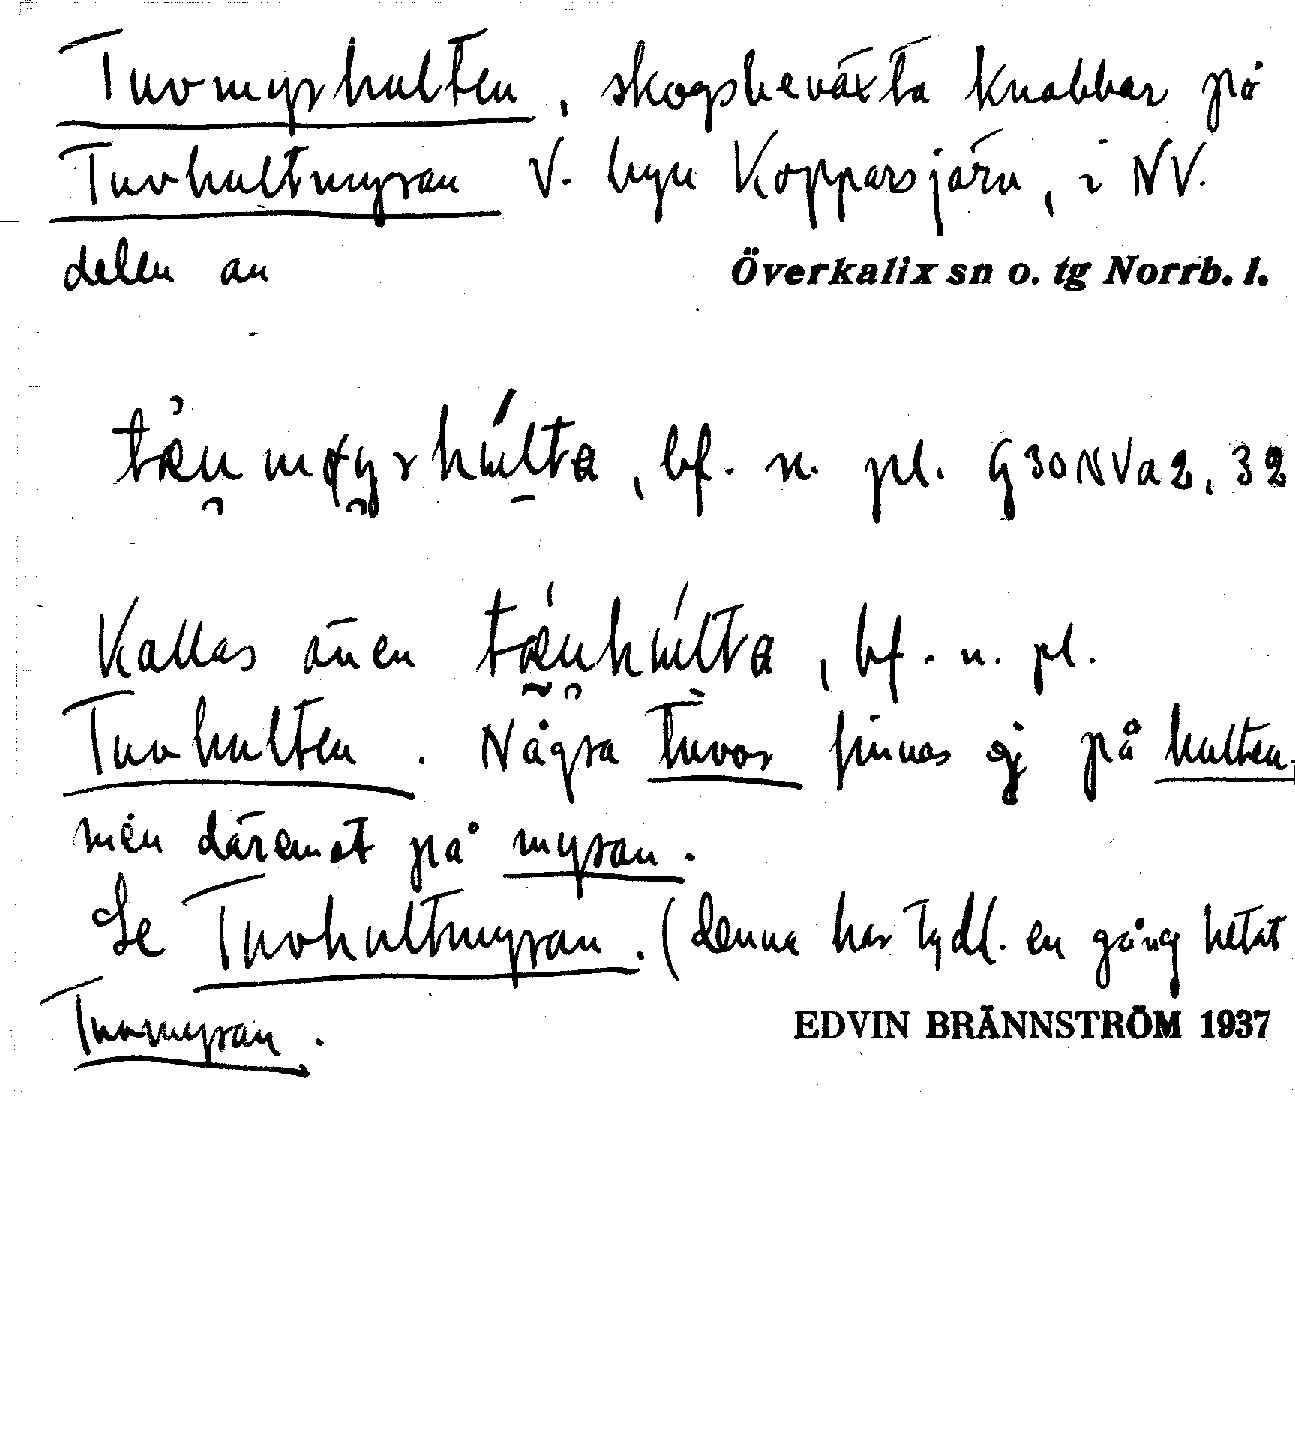 Tuvmyrhulten, skogsbeväxta knabbar på
Tuvhultmyran V. byn Kopparsjärv, i NV.
delen av
Överkalix sn o. tg Norrb. l.
bf. n. pl. G30NVa2, 32
Kallas även , bf. n. pl.
Tuvhulten. Några tuvor finnas ej på hulten
men däremot på myran.
Se Tuvhultmyran. (denna har tydl. en gång hetat
Tuvmyran.
EDVIN BRÄNNSTRÖM 1937